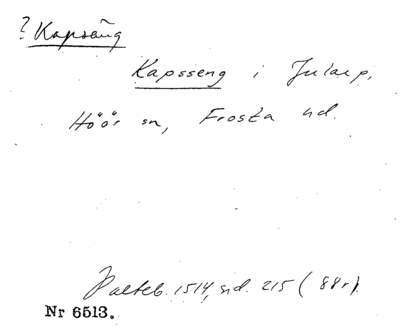 ? Kapsäng
Kapsseng i Jularp,
Höör sn, Frosta hd.
Palteb. 1514, sid. 215 (88r).
Nr 6513.